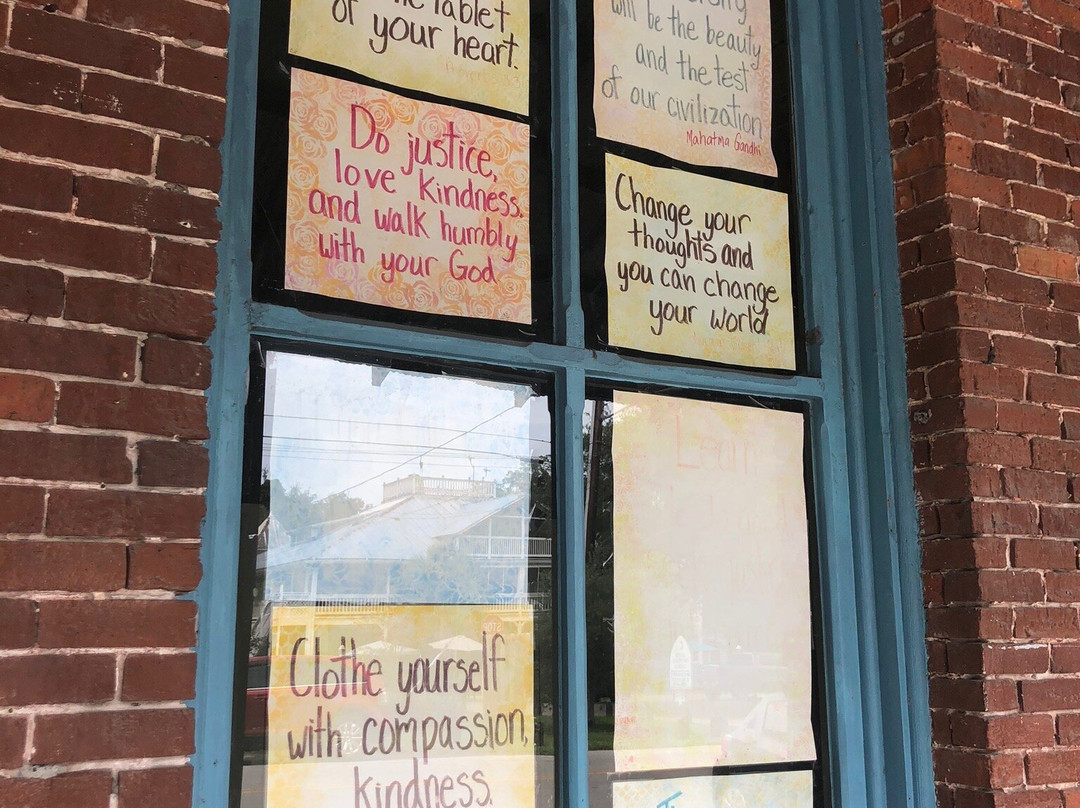 of your heart.
Do justice,
love kindness,
and walk humbly
with your God
will be the beauty
and the test
of our civilization
Mahatma Gandhi
Change your
thoughts and
you can change
your world
Lean
Clothe yourself
with compassion,
kindness.